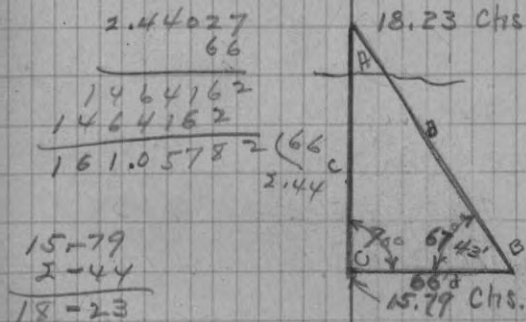 2.44027
66
1464162
1464162
161.05782 (66
2.44
15-79
2-44
18-23
18.23 Chs
A
B
C
90°
67°
43'
B
C
66
15.79 Chs.